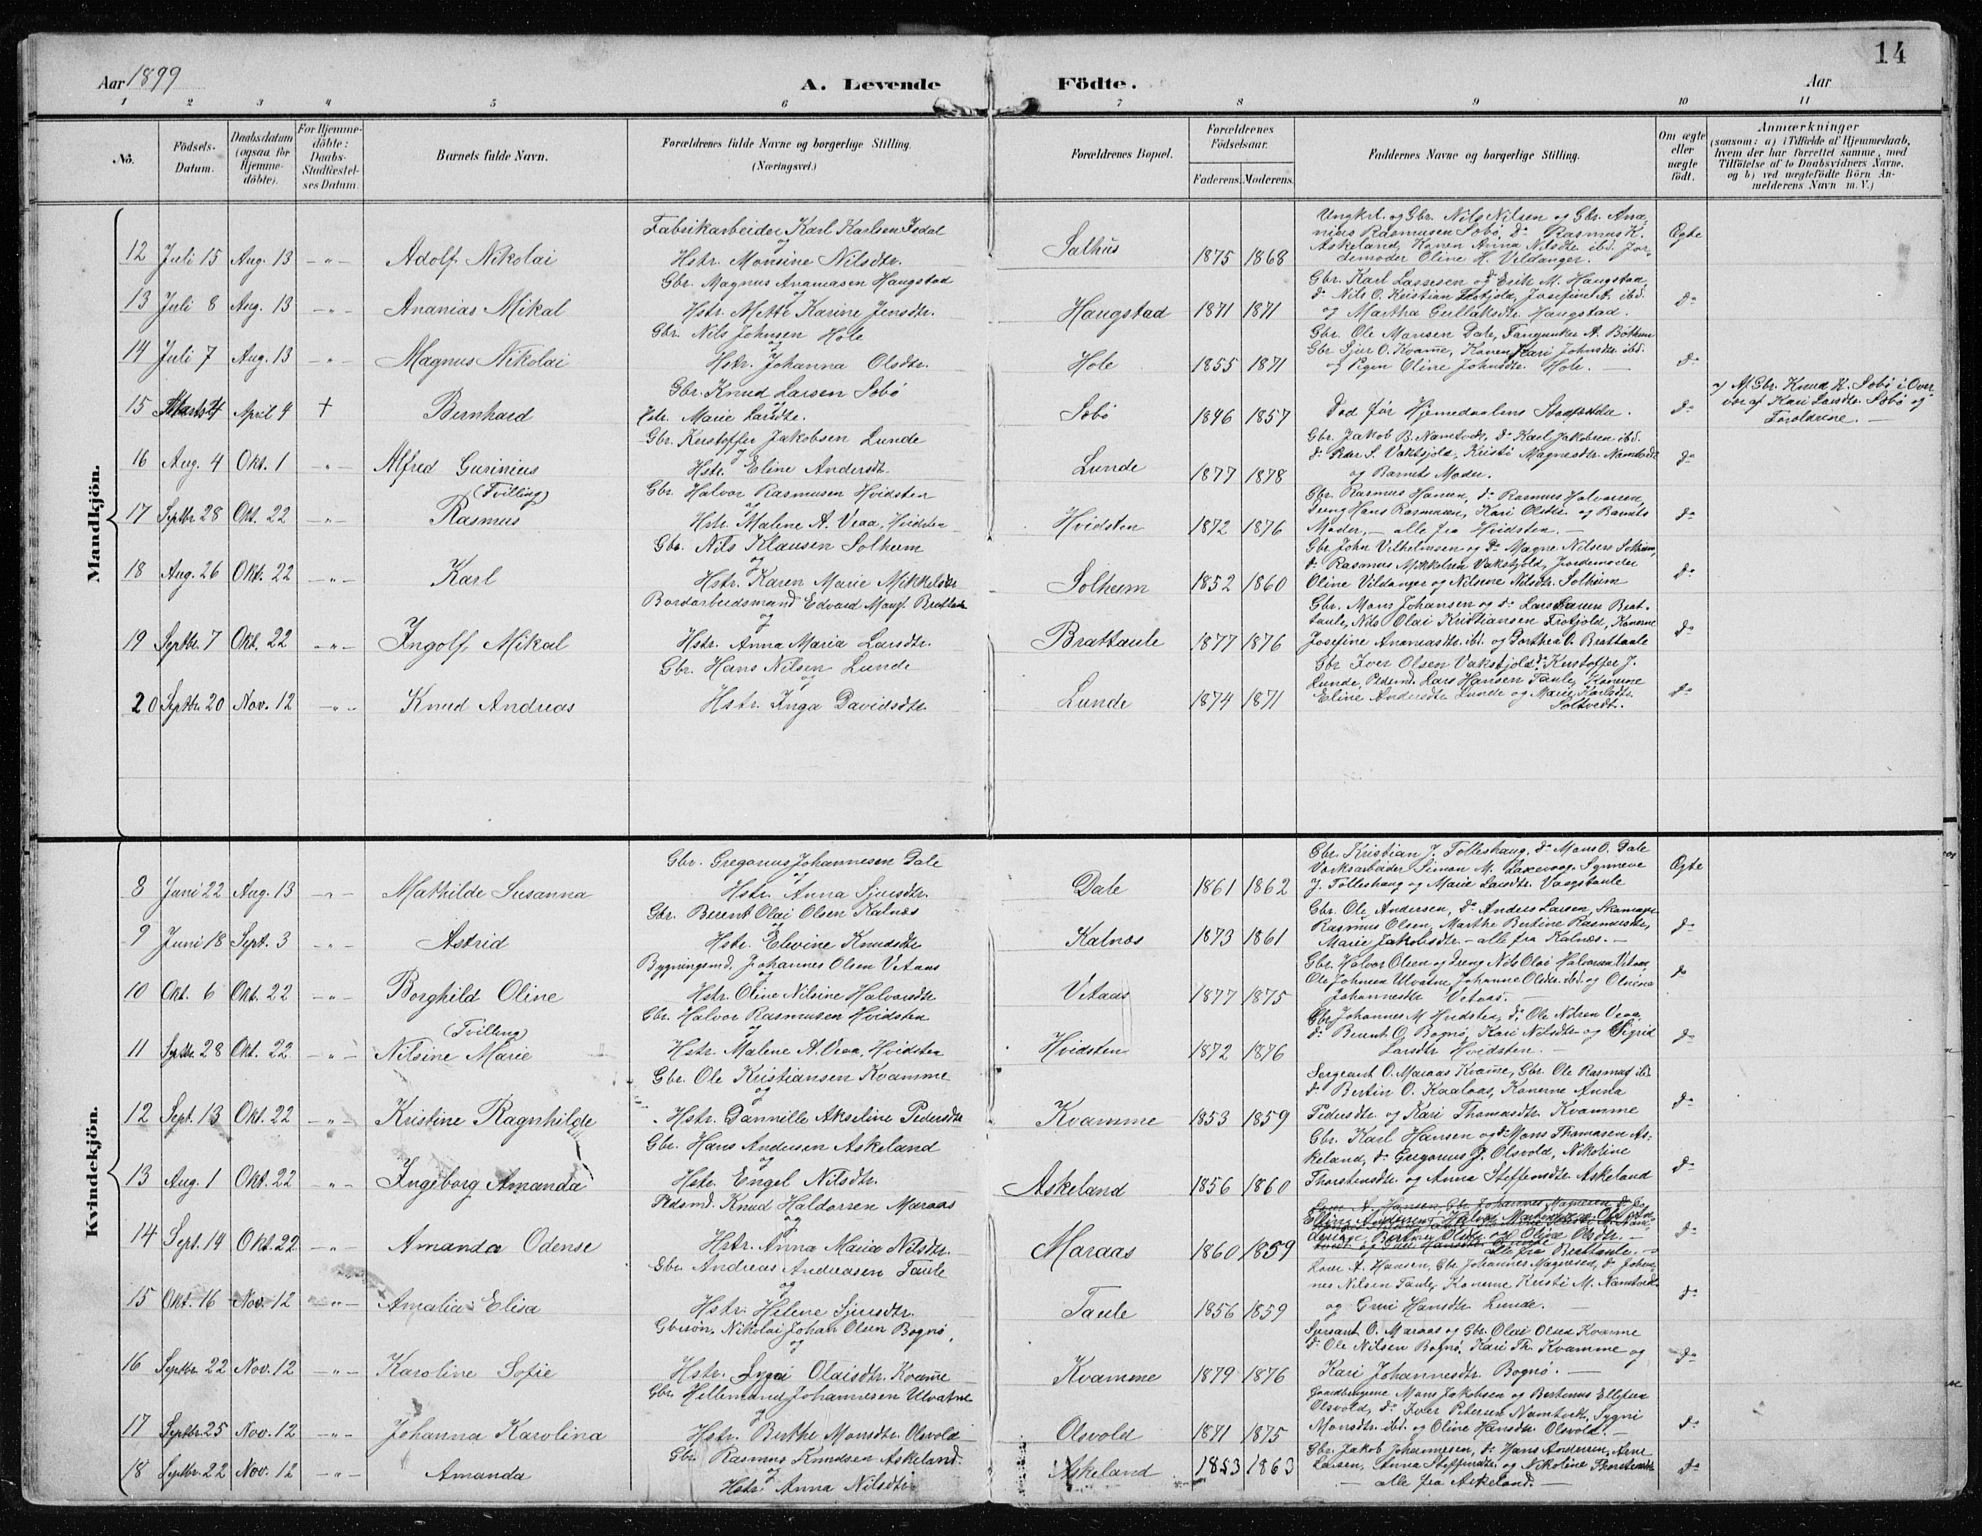 14
Aar 1899
A. Levende
Födte.
Aar
1 2 3 4 5 6 7 8 9 10 11
No.
Födsels-Datum.
Daabsdatum (ogsaa for Hjemme-döbte).
For Hjemme-döbte: Daabs-Stadfæstel-ses Datum.
Barnets fulde Navn.
Forældrenes fulde Navne og borgerlige Stilling. (Næringsvei.)
Forældrenes Bopæl.
Forældrenes Födselsaar.
Faderens. Moderens.
Faddernes Navne og borgerlige Stilling.
Om ægte eller uægte födt.
Anmærkninger
(saasom: a) i Tilfælde af Hjemmedaab,
hvem der har forrettet samme, med
Tilföielse af to Daabsvidners Navne,
og b) ved uægtefödte Börn An-
melderens Navn m. V.)
Mandkjön.
12 Juli 15 Aug. 13 -"- Adolf Nikolai
Fabrikarbeider Karl Karlsen Isdal
og
Hstr. Monsine Nilsdtr.
Salhus 1875 1868
Ungkrl. og Gbr. Nils Nilsen og Gbr. Ana-
nias Rasmussen Söbö, do Rasmus K.
Askeland, Konen Anna Nilsdtr ibd. Jor-
demoder Oline H. Vildanger.
Ægte
13 Juli 8 Aug. 13 -"- Ananias Mikal
Gbr. Magnus Ananiasen Haugstad
og
Hstr. Mette Karine Jensdtr.
Haugstad 1871 1871
Gbr. Karl Lassesen do Erik M. Haugstad,
do Nils O. Kristian Josefine A. ibd.
og Martha Gullaksdtr Haugstad.
do
14 Juli 7 Aug. 13 -"- Magnus Nikolai
Gbr. Nils Johnsen Hole
og
Hstr. Johanna Olsdtr.
Hole 1855 1871
Gbr. Ole Monsen Dale, A.
Gbr Sjur O. Kvamme, Konen Kari Johnsdtr ibd.
og Pigen Oline Johnsdtr Hole.
do
15 Marts 24 April 4 + Bernhard
Gbr. Knud Larsen Söbö
og
Hstr. Marie Larsdtr.
Söbö 1846 1857
Död för Hjemedaabens Stadfæstelse.
do
a) Af Gbr. Knud K. Söbö i Over-
vær af Kari Larsdtr. Söbö og
Forældrene.
16 Aug. 4 Okt. 1 -"- Alfred Gurinius
Gbr. Kristoffer Jakobsen Lunde
og
Hstr. Eline Andersdtr.
Lunde 1877 1878
Gbr. Jakob B. Namtvedt, do Karl Jakobsen ibd.
do Peder S. Vakskjold, Kristi Magnesdtr. Namtvedt
og Barnets Moder.
do
17 Septbr 28 Okt. 22 -"- (Tvilling) Rasmus
Gbr. Halvor Rasmusen Hvidsten
og
Hstr. Malene A. Veaa, Hvidsten
Hvidsten 1872 1876
Gbr. Rasmus Hansen, do Rasmus Halvorsen,
Dreng Hans Rasmusen, Kari Olsdtr og Barnets
Moder, - alle fra Hvidsten. -
do
18 Aug. 26 Oktr. 22 -"- Karl
Gbr. Nils Klausen Solheim
og
Hstr. Karen Marie Mikkelsdtr
Solheim 1852 1860
Gbr. John Vilhelmsen og do Magne Nilsen Solheim,
do Rasmus Mikkelsen Vakskjold, Jordemoder
Oline Vildanger og Nilsine Nilsdtr. Solheim
do
19 Septbr. 7 Okt. 22 -"- Ingolf Mikal
Bordarbeidsmand Edvard Brattaule
og
Hstr. Anna Maria Larsdtr.
Brattaule 1877 1876
Gbr. Mons Johansen og do Lars Larsen Brat-
taule, Nils Olai Kristiansen Konerne
Josefine Ananiasdtr. ibd. og Dorthea O. Brattaule
do
20 Septbr. 20 Nov. 12 -"- Knud Andreas
Gbr. Hans Nilsen Lunde
og
Hstr. Inga Davidsdtr.
Lunde 1874 1871
Gbr Iver Olsen Vakskjold, do Kristoffer J.
Lunde, Pldsmd. Lars Hansen Taule, Konerne
Eline Andersdtr Lunde og Marie Karlsdtr.
Soltvedt.
do
Kvindekjön.
8 Juni 22 Aug. 13 -"- Mathilde Susanna
Gbr. Gregorius Johannesen Dale
og
Hstr. Anna Sjursdtr.
Dale 1861 1862
Gbr. Kristian J. Tolleshaug, do Mons O. Dale
Værksarbeider Simon M. Laxevaag, Synneve
J. Tolleshaug og Marie Larsdtr. Vaagstaule
Ægte
9 Juni 18 Sept. 3 -"- Astrid
Gbr. Berent Olai Olsen Kalnæs
og
Hstr. Elevine Knudsdtr
Kalnæs 1873 1861
Gbr. Ole Andersen, do Anders Larsen, Skomager
Rasmus Olsen, Marthe Bertine Rasmusdtr,
Marie Jakobsdtr. - alle fra Kalnæs. -
do
10 Okt. 6 Okt. 22 -"- Borghild Oline
Bygningsmd. Johannes Olsen Vetaas
og
Hstr. Oline Nilsine Halvorsdtr
Vetaas 1877 1875
Gbr. Halvor Olsen og Dreng Nils Olai Halvorsen Vetaas,
Ole Johnsen Ulvatne, Johanne Olsdtr. ibd. og Olevina
Johannesdtr Vetaas. -
do
11 Septbr. 28 Okt. 22 -"- (Tvilling) Nilsine Marie
Gbr. Halvor Rasmusen Hvidsten
og
Hstr. Malene A. Veaa, Hvidsten
Hvidsten 1872 1876
Gbr Johannes M. Hvidsten, do Ole Nilsen Veaa,
do Bernt O. Bognö, Kari Nilsdtr og Sigrid
Larsdtr Hvidsten. -
do
12 Sept. 13 Okt. 22 -"- Kristine Ragnhilde
Gbr. Ole Kristiansen Kvamme
og
Hstr. Dannille Akseline Pedersdtr
Kvamme 1853 1859
Sergeant O. Maraas Kvamme, Gbr. Ole Rasmus ibd.
do Bertin O. Kaalaas, Konerne Anna
Pedersdtr og Kari Thomasdtr. Kvamme
do
13 Aug. 1 Okt. 22 -"- Ingeborg Amanda
Gbr. Hans Andersen Askeland
og
Hstr. Engel Nilsdtr.
Askeland 1856 1860
Gbr. Karl Hansen og do Mons Thomasen As-
keland, do Gregorius J. Olsvold, Nikoline
Thorstensdtr og Anna Steffensdtr Askeland
do
14 Sept. 14 Okt. 22 -"- Amanda Odense
Pldsmd. Knud Haldorsen Maraas
og
Hstr. Anna Maria Nilsdtr.
Maraas 1860 1859
alle fra Brattaule. -
do
15 Okt. 16 Nov. 12 -"- Amalia Elisa
Gbr. Andreas Andreasen Taule
og
Hstr. Helene Sjursdtr.
Taule 1856 1859
A. Hansen, Gbr Johannes Magnesen, do Johan-
nes Nilsen Taule, Konerne Kristi M. Namtvedt
og Guri Hansdtr. Lunde. -
do
16 Septbr. 22 Nov. 12 -"- Karoline Sofie
Gbrsön. Nikolai Johan Olsen Bognö,
og
Hstr. Olaisdtr. Kvamme
Kvamme 1879 1876
Sersant O. Maraas og Gbr. Olai Olsen Kvamme
do Ole Nilsen Bognö, Kari Th. Kvamme og
Kari Johannesdtr. Bognö. -
do
17 Septbr. 25 Nov. 12 -"- Johanna Karolina
Gbr. Hillemand Johannesen Ulvatne
og
Hstr. Berthe Monsdtr. Olsvold
Olsvold 1871 1875
Gaardbrugerne Mons Jakobsen og Bertinus Ellefsen
Olsvold, do Iver Petersen Namtvedt, Sygni
Monsdtr. ibd. og Oline Hansdtr. Olsvold. -
do
18 Septbr. 22 Nov. 12 -"- Amanda
Gbr. Rasmus Knudsen Askeland.
og
Hstr. Anna Nilsdtr.
Askeland 1853 1863
Gbr. Jakob Johannesen, do Hans Andersen, Arne
Larsen, Anna Steffensdtr og Nikoline Thorstensdtr
- alle fra Askeland. -
do